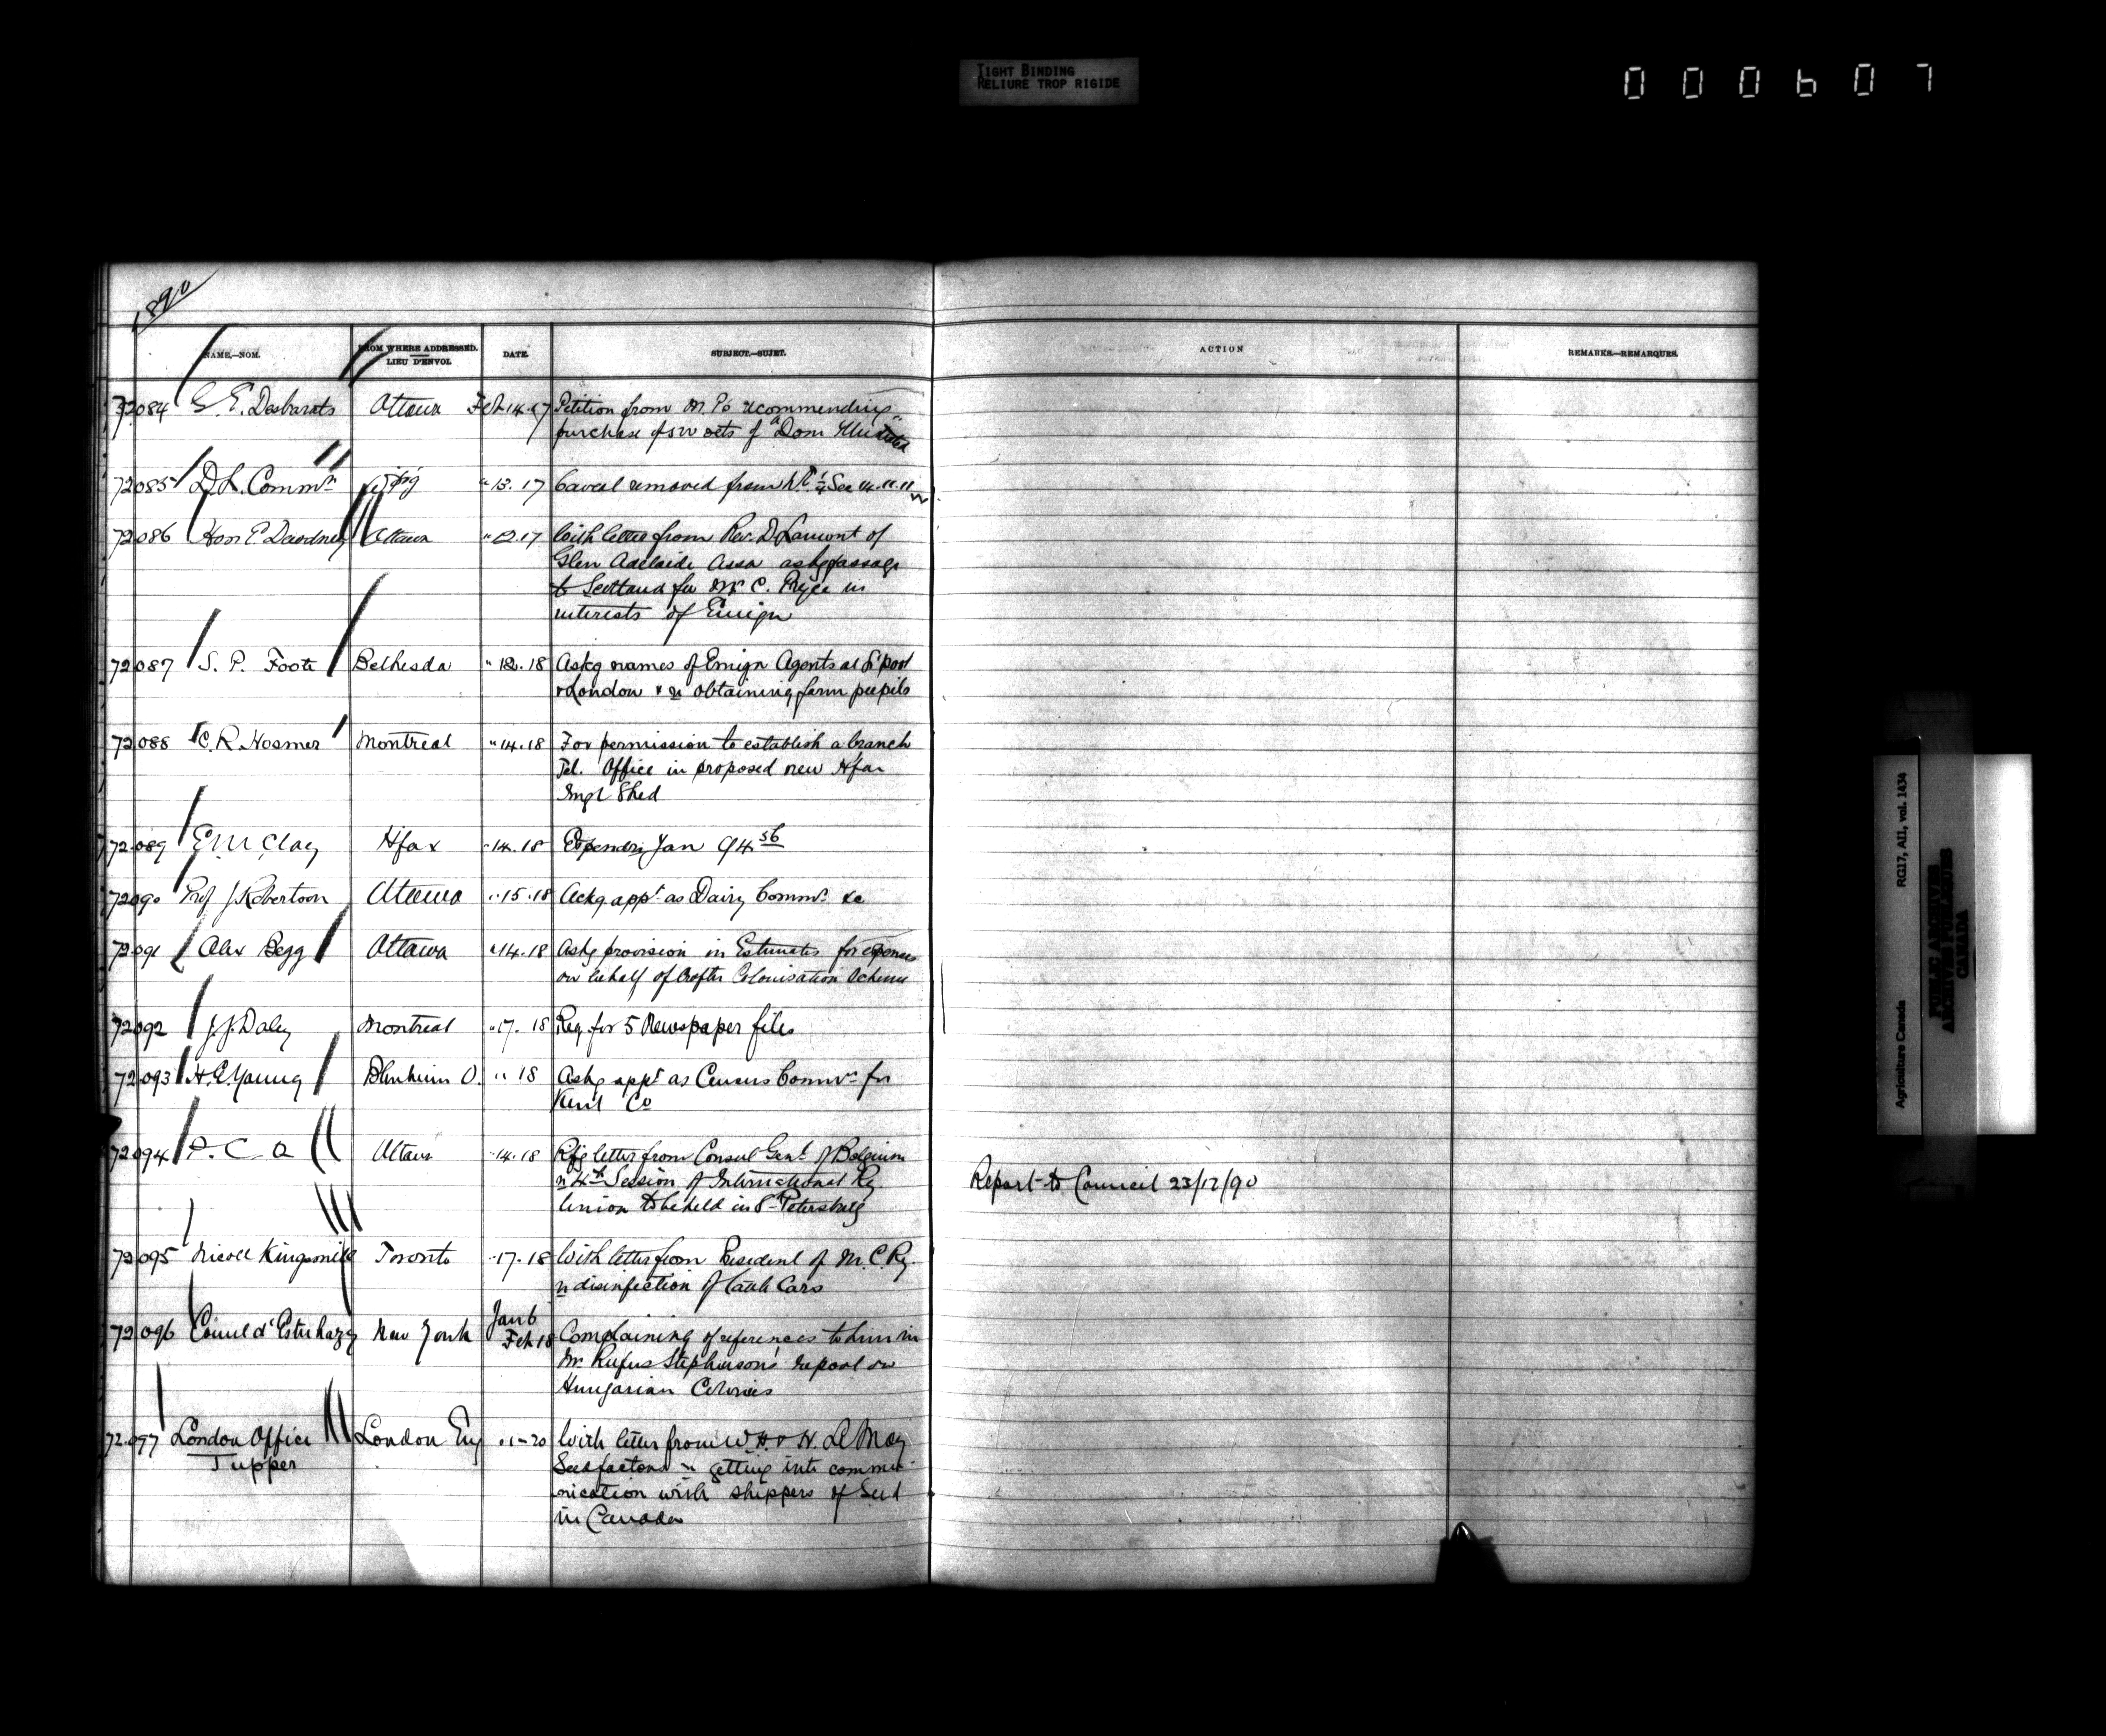 TIGHT BINDING
RELIURE TROP RIGIDE
000607
1890
NAME.—NOM.
FROM WHERE ADDRESSED.
LIEU D'ENVOI.
DATE.
SUBJECT.—SUJET.
ACTION
REMARKS.—REMARQUES.
72084 G. E. Desbarats Ottawa Feb 14.17 Petition from M. Ps recommending
purchase of 500 sets of "Dom Illustrated"
72085 D. L. Commr Wpg " 13.17 Caveat removed from 14.11.11 W
72086 Hon E. Dewdney Ottawa " 12.17 With letter from Rev. D. Lamont of
Glen Adelaide Assa askg passage
to Scotland for Mr C. Pryce in
interests of Emign
72087 S. P. Foote Bethesda " 18 Askg names of Emign Agents at L'pool
& London & re obtaining farm pupils
72088 C. R. Hosmer Montreal " 14.18 For permission to establish a branch
Tel. Office in proposed new Hfax
Imgt Shed
72089 E M Clay Hfax " 14.18 Expendre Jan 94 56
72090 Prof J Robertson Ottawa " 15.18 Ackg appt as Dairy Commr &c
72091 Alex Begg Ottawa " 14.18 Askg provision in Estimates for expenses
on behalf of Crofter Colonisation Scheme
72092 J. J. Daley Montreal " 17.18 Req. for 5 Newspaper files
72093 H. E. Young Blenheim O. " " 18 Askg appt as Census Commr for
Kent Co
72094 P. C O Ottawa " 14.18 Refg letter from Consul Genl of Belgium
re 4th Session of International Ry
Union to be held in St Petersburg
Report to Council 23/12/90
72095 Nicoll Kingsmill Toronto " 17.18 With letter from President of M. C. Ry.
re disinfection of Cattle Cars
72096 Count d'Esterhazy New York Jan 6
Feb 18 Complaining of references to him in
Mr. Rufus Stephenson's report on
Hungarian Colonies
72097 London Office London Eng " 1-20 With letter from W. H. & H. Le May
Tupper
Seed factors re getting into commu-
nication with shippers of Seed
in Canada
Agriculture Canada RG17, AII, vol. 1434
PUBLIC ARCHIVES
ARCHIVES PUBLIQUES
CANADA